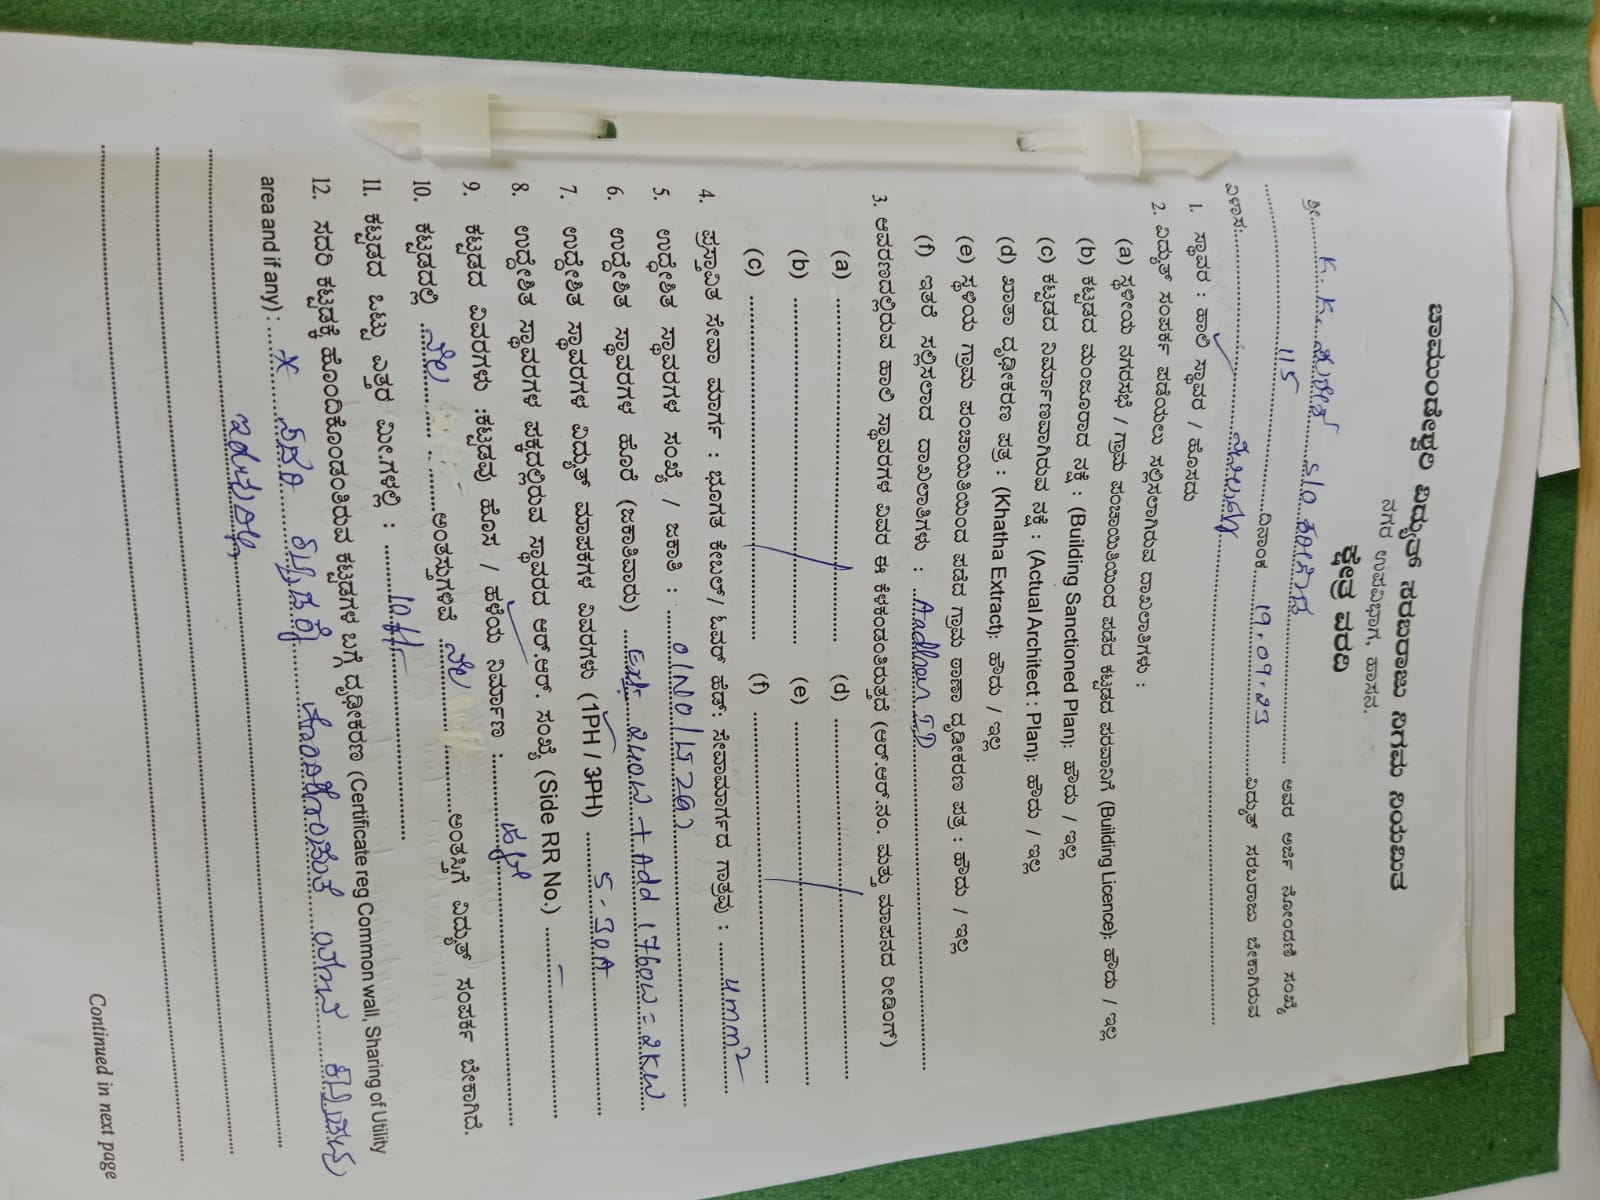 ಚಾಮುಂಡೇಶ್ವರಿ ವಿದ್ಯುತ್ ಸರಬರಾಜು ನಿಗಮ ನಿಯಮಿತ
ನಗರ ಉಪವಿಭಾಗ, ಹಾಸನ.
ಕ್ಷೇತ್ರ ವರದಿ
ಶ್ರೀ. K. K. S/o ಅವರ ಅರ್ಜಿ ನೋಂದಣಿ ಸಂಖ್ಯೆ
115 ದಿನಾಂಕ 19.09.23 ವಿದ್ಯುತ್ ಸರಬರಾಜು ಬೇಕಾಗಿರುವ
ವಿಳಾಸ:
1. ಸ್ಥಾವರ : ಹಾಲಿ ಸ್ಥಾವರ / ಹೊಸದು
2. ವಿದ್ಯುತ್ ಸಂಪರ್ಕ ಪಡೆಯಲು ಸಲ್ಲಿಸಲಾಗಿರುವ ದಾಖಲಾತಿಗಳು :
(a) ಸ್ಥಳೀಯ ನಗರಸಭೆ / ಗ್ರಾಮ ಪಂಚಾಯಿತಿಯಿಂದ ಪಡೆದ ಕಟ್ಟಡದ ಪರವಾನಿಗೆ (Building Licence): ಹೌದು / ಇಲ್ಲ
(b) ಕಟ್ಟಡದ ಮಂಜೂರಾದ ನಕ್ಷೆ : (Building Sanctioned Plan): ಹೌದು / ಇಲ್ಲ
(c) ಕಟ್ಟಡದ ನಿರ್ಮಾಣವಾಗಿರುವ ನಕ್ಷೆ : (Actual Architect : Plan): ಹೌದು / ಇಲ್ಲ
(d) ಖಾತಾ ದೃಢೀಕರಣ ಪತ್ರ : (Khatha Extract): ಹೌದು / ಇಲ್ಲ
(e) ಸ್ಥಳೀಯ ಗ್ರಾಮ ಪಂಚಾಯಿತಿಯಿಂದ ಪಡೆದ ಗ್ರಾಮ ಠಾಣಾ ದೃಡೀಕರಣ ಪತ್ರ : ಹೌದು / ಇಲ್ಲ
(f) ಇತರೆ ಸಲ್ಲಿಸಲಾದ ದಾಖಲಾತಿಗಳು : Aadhar ID
3. ಆವರಣದಲ್ಲಿರುವ ಹಾಲಿ ಸ್ಥಾವರಗಳ ವಿವರ ಈ ಕೆಳಕಂಡಂತಿರುತ್ತದೆ (ಆರ್.ಆರ್.ನಂ. ಮತ್ತು ಮಾಪನದ ರೀಡಿಂಗ್)
(a) (d)
(b) (e)
(c) (f)
4. ಪ್ರಸ್ತಾವಿತ ಸೇವಾ ಮಾರ್ಗ : ಭೂಗತ ಕೇಬಲ್/ ಓವರ್ ಹೆಡ್: ಸೇವಾಮಾರ್ಗದ ಗಾತ್ರವು : 4mm²
5. ಉದ್ದೇಶಿತ ಸ್ಥಾವರಗಳ ಸಂಖ್ಯೆ / ಜಕಾತಿ :
6. ಉದ್ದೇಶಿತ ಸ್ಥಾವರಗಳ ಹೊರೆ (ಜಕಾತಿವಾರು) Ext: 240w + Add 1760w = 2KW
7. ಉದ್ದೇಶಿತ ಸ್ಥಾವರಗಳ ವಿದ್ಯುತ್ ಮಾಪಕಗಳ ವಿವರಗಳು (1PH / 3PH) 5-30A
8. ಉದ್ದೇಶಿತ ಸ್ಥಾವರಗಳ ಪಕ್ಕದಲ್ಲಿರುವ ಸ್ಥಾವರದ ಆರ್.ಆರ್. ಸಂಖ್ಯೆ (Side RR No.) –
9. ಕಟ್ಟಡದ ವಿವರಗಳು :ಕಟ್ಟಡವು ಹೊಸ / ಹಳೆಯ ನಿರ್ಮಾಣ :
10. ಕಟ್ಟಡದಲ್ಲಿ ನೆಲ ಅಂತಸ್ತುಗಳಿವೆ ನೆಲ ಅಂತಸ್ತಿಗೆ ವಿದ್ಯುತ್ ಸಂಪರ್ಕ ಬೇಕಾಗಿದೆ.
11. ಕಟ್ಟಡದ ಒಟ್ಟು ಎತ್ತರ ಮೀ.ಗಳಲ್ಲಿ :
12. ಸದರಿ ಕಟ್ಟಡಕ್ಕೆ ಹೊಂದಿಕೊಂಡಂತಿರುವ ಕಟ್ಟಡಗಳ ಬಗ್ಗೆ ದೃಢೀಕರಣ (Certificate reg Common wall, Sharing of Utility
area and if any) : * ಸದರಿ ಕಟ್ಟಡಕ್ಕೆ ಹೊಂದಿಕೊಂಡಂತೆ ಯಾವ ಕಟ್ಟಡವು
ಇರುವುದಿಲ್ಲ
Continued in next page